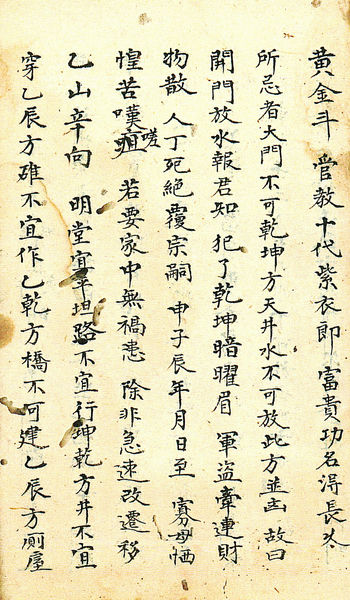 黄金斗 管教十代紫衣郎 富貴功名淂長久
所忌者大門不可乾坤方天井水不可放此方並凶 故曰
開門放水報君知 犯了乾坤暗曜眉 軍盗牽連財
物散 人丁死絶覆宗嗣 申子辰年月日至 寡母恓
惶苦嘆嗟 若要家中無禍患 除非急速改遷移
乙山辛向 明堂宜平坦路不宜行坤乾方井不宜
穿乙辰方碓不宜作乙乾方橋不可建乙辰方廁屋